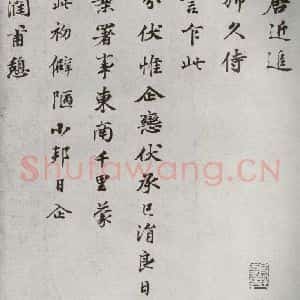 唐近進
師久侍
言乍此
分伏惟企戀伏承已涓良日
深署事東南千里蒙
此初僻陋小邦日企
潤甫憩
Shufawang.CN